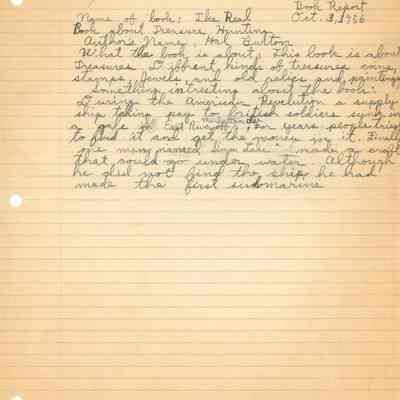 Book Report
Oct. 3, 1956
Name of book: The Real
Book about Treasure Hunting
Author's Name: Hal Burton
What the book is about: This book is about
Treasures. Difbrent kinds of treasures coins,
stamps, Jewels, and old relics and paintings
Something intresting about the book:
During the American Revolution a supply
ship taking pay to british soldiers sunk in
a gale in East River. For years people tried
to find it and get the money in it. Finaly
one man named made a craft
that could go under water. Although
he did not find the ship he had
made the first submarine